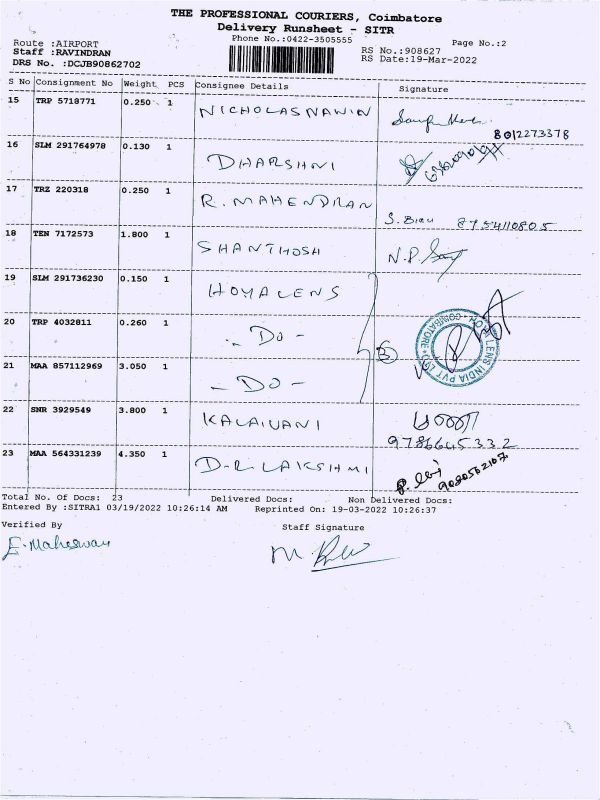 THE PROFESSIONAL COURIERS, Coimbatore
Delivery Runsheet - SITR
Phone No.:0422-3505555
Page No.:2
Route :AIRPORT
Staff :RAVINDRAN
RS No.:908627
DRS No. :DCJB90862702
RS Date:19-Mar-2022
S No Consignment No Weight PCS Consignee Details Signature
15 TRP 5718771 0.250 1 NICHOLASNAWIN
8012273378
16 SLM 291764978 0.130 1 DHARSHNI
17 TRZ 220318 0.250 1 R. MAHENDRAN
8754110805
18 TEN 7172573 1.800 1 SHANTHOSH
19 SLM 291736230 0.150 1 HOYALENS
20 TRP 4032811 0.260 1 - DO -
21 MAA 857112969 3.050 1 - DO -
3
HOYA LENS INDIA PVT LTD COIMBATORE
22 SNR 3929549 3.800 1 KALAIVANI
9786645332
23 MAA 564331239 4.350 1 D.R. LAKSHMI
9080562107
Total No. Of Docs: 23 Delivered Docs: Non Delivered Docs:
Entered By :SITRA1 03/19/2022 10:26:14 AM Reprinted On: 19-03-2022 10:26:37
Verified By Staff Signature
E. Maheswari